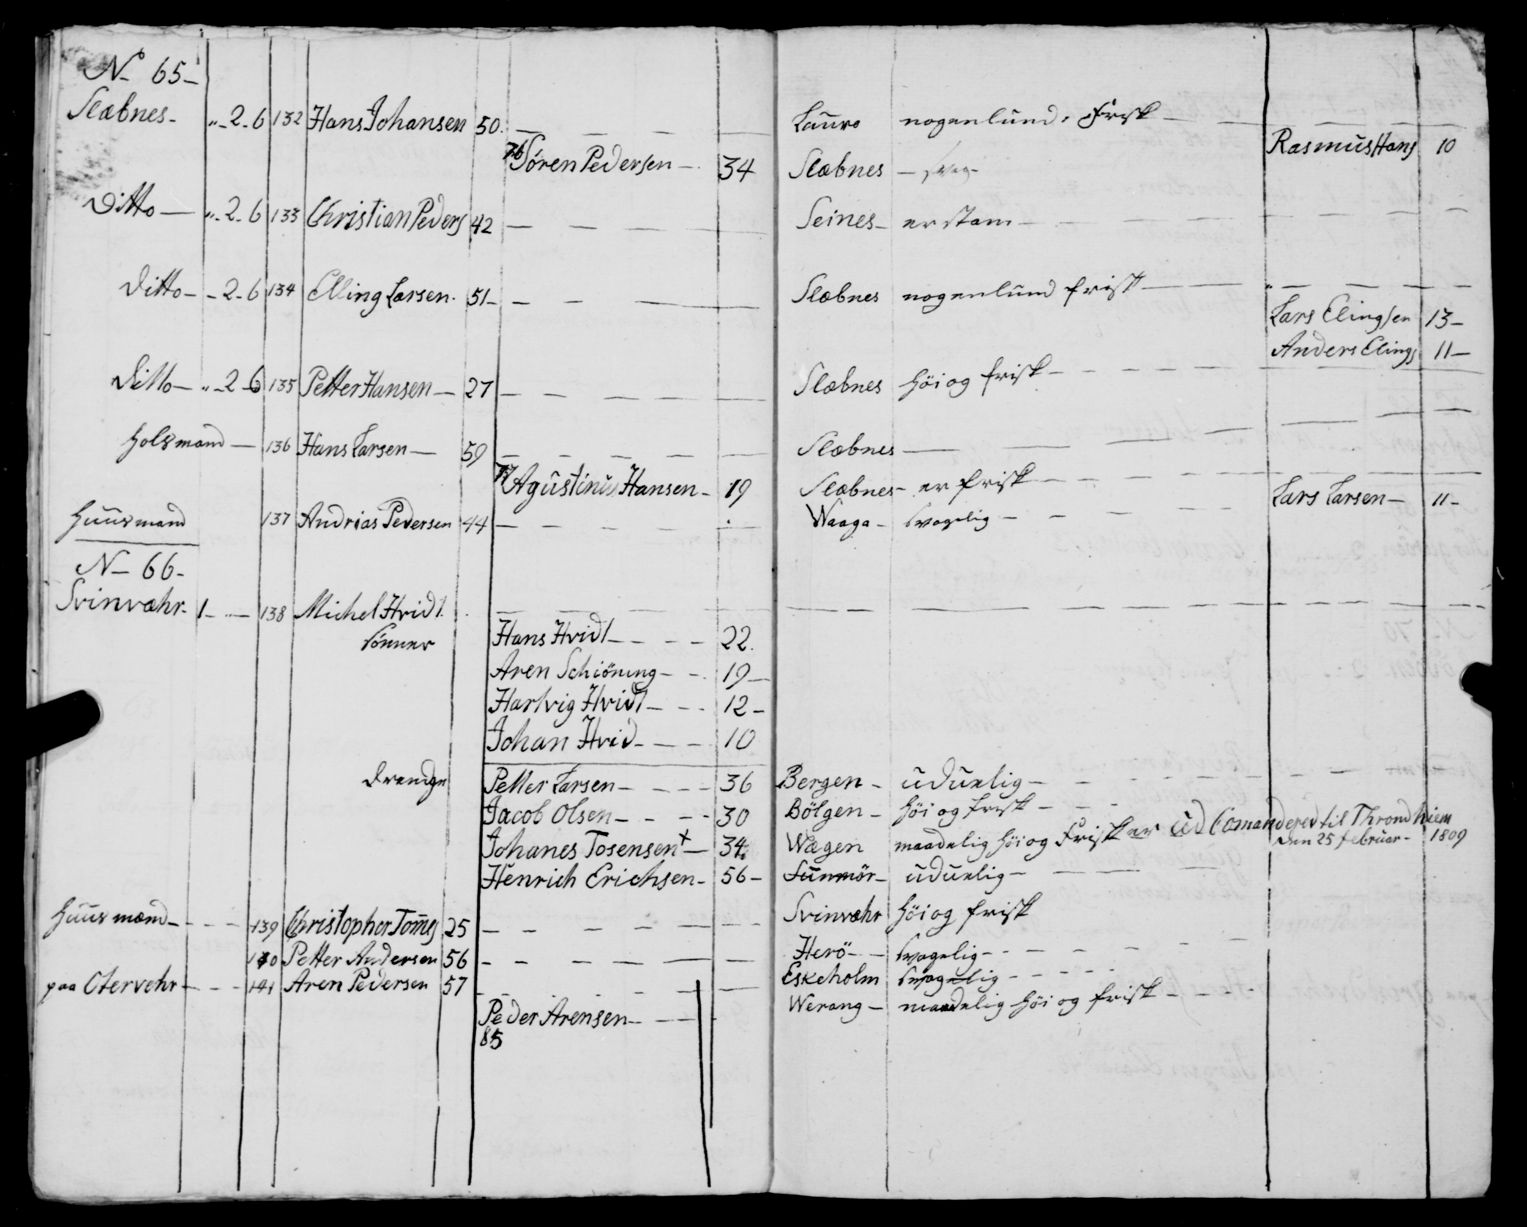 N 65-
Slæbnes- „-2-6 132 Hans Johansen 50. Lauvø nogenlund. Frisk
76 Sören Pedersen 34 Slæbnes - svag- Rasmus Hans 10
Ditto „-2-6 133 Christian Peders 42 Seines- er stam
Ditto- -2-6 134 Elling Larsen. 51- Slæbnes nogenlund frisk
Lars Elingsen 13-
Anders Elings 11-
Ditto- „-2-6 135 Petter Hansen 27 Slæbnes höi og frisk
136 Hans Larsen 59 Slæbnes
77 Agustinus Hansen- 19 Slæbnes- er frisk Lars Larsen- 11-
Huusmand 137 Andrias Pedersen 44 Waaga- svagelig
N- 66-
Svinvæhr- 1- 138 Michel Hvidt.
Sönner Hans Hvidt 22.
Aren Schiöning 19
Hartvig Hvidt 12-
Johan Hvid 10
Drenge Petter Larsen 36 Bergen- uduelig
Jacob Olsen 30 Bölgen- höi og frisk
Johanes Tosensen+ 34 Wægen maadelig höi og Frisk er Ud Comanderet til Throndhiem
Den 25 februar- 1809
Henrich Erichsen- 56- Sunmör- uduelig
Huusmænd 139 Christopher Toms 25 Svinvæhr höi og frisk
140 Petter Andersen 56 Herö svagelig
paa Otervehr 141 Aren Pedersen 57 Eskeholm svagelig
Peder Arensen Werang- maadelig höi og frisk
85